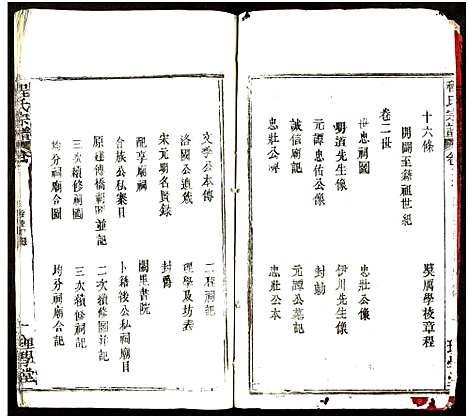 程氏宗譜
十六條
奬厲學稜章程
開闢至錦祖世紀
卷二世
世忠祠圖
忠壯公像
明道先生像
伊川先生像
元譚忠佑公像
封勅
誠信廟記
元譚公墓記
忠壯公碑
忠壯公本
文季公本傳
二程祠記
洛國公道蔑
理學及坊表
宋元廟名賢錄
封爵
配享廟祠
闕里書院
合族公私案目
卜籍後公私祠廟目
原建傳橋祠圖並記
二次續修圖并記
三次續修祠圖
三次續修祠記
均分祠廟合圖
均分祠廟合記
程氏宗譜
理學堂